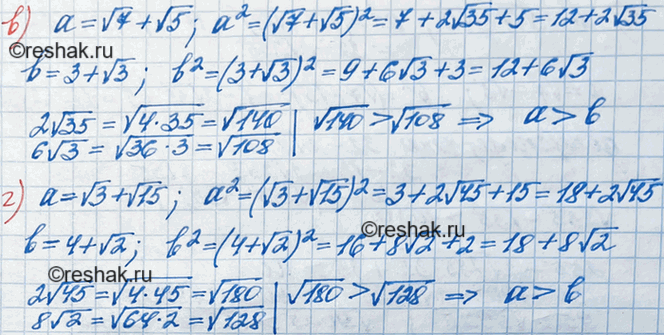 в) a=√7+√5; a²=(√7+√5)²=7+2√35+5=12+2√35
©reshak.ru
b=3+√3; b²=(3+√3)²=9+6√3+3=12+6√3
2√35=√(4·35)=√140 | √140>√108 ⇒ a>b
6√3=√(36·3)=√108
г) a=√3+√15; a²=(√3+√15)²=3+2√45+15=18+2√45
©reshak.ru
b=4+√2; b²=(4+√2)²=16+8√2+2=18+8√2
©reshak.ru
2√45=√(4·45)=√180 | √180>√128 ⇒ a>b
8√2=√(64·2)=√128